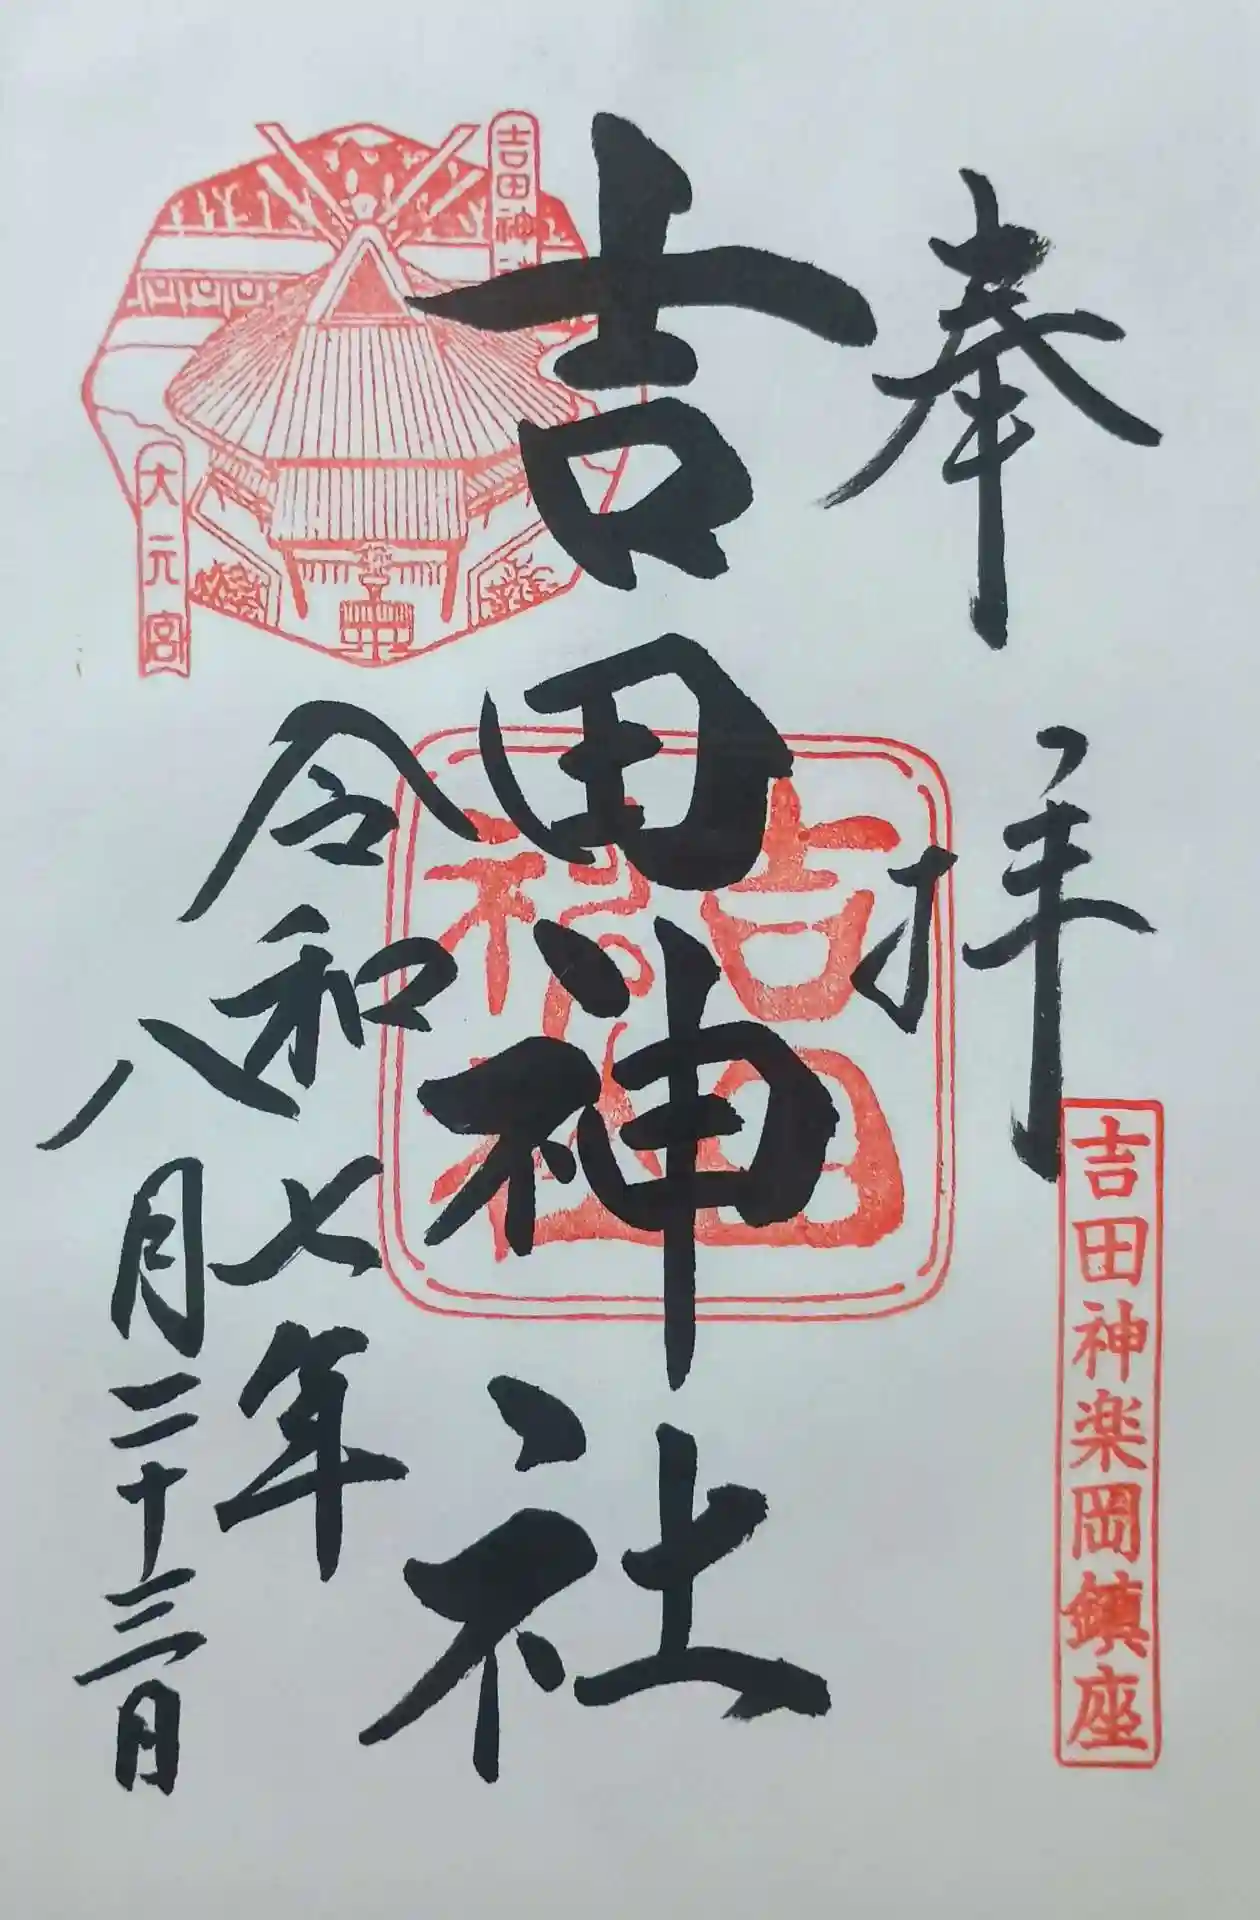 奉拝
吉田神楽岡鎮座
吉田神社
吉田神社
令和七年
八月二十三日
吉田神社
大元宮